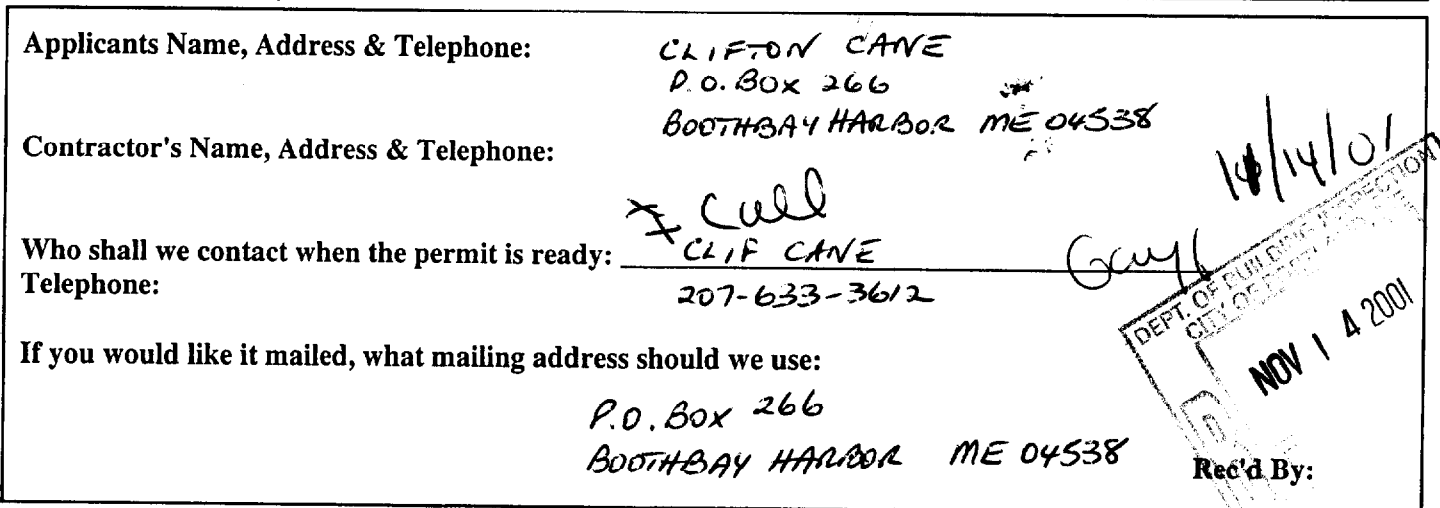 Applicants Name, Address & Telephone: CLIFTON CANE
P.O. BOX 266
BOOTHBAY HARBOR ME 04538
Contractor's Name, Address & Telephone:
11/14/01
* Call
Who shall we contact when the permit is ready: CLIF CANE
Telephone: 207-633-3612
DEPT. OF BUILDING INSPECTION
CITY OF
NOV 14 2001
If you would like it mailed, what mailing address should we use:
P.O. BOX 266
BOOTHBAY HARBOR ME 04538
Rec'd By: